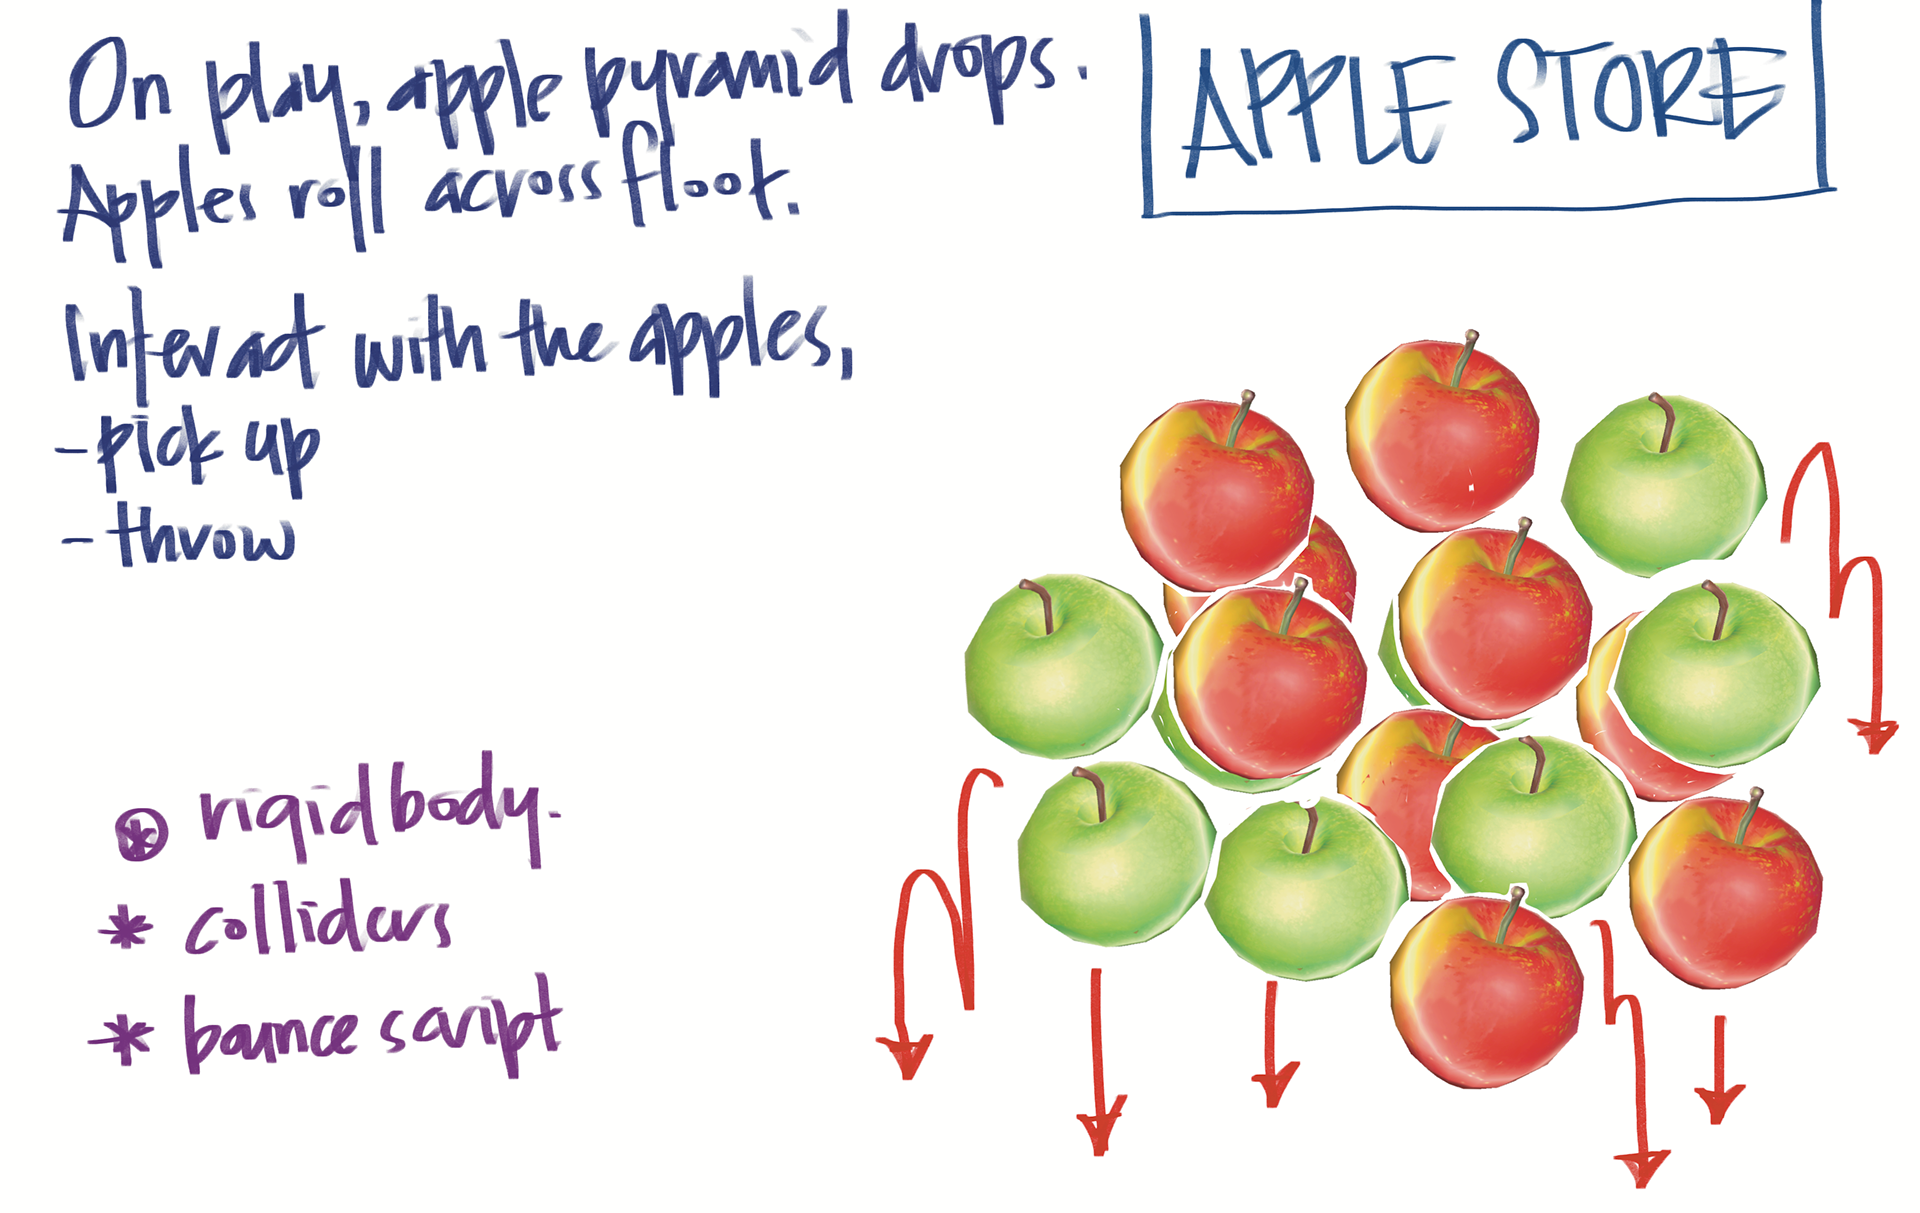 On play, apple pyramid drops.
Apples roll across floot.
Interact with the apples,
- pick up
- throw
APPLE STORE
* rigid body.
* colliders
* bounce script